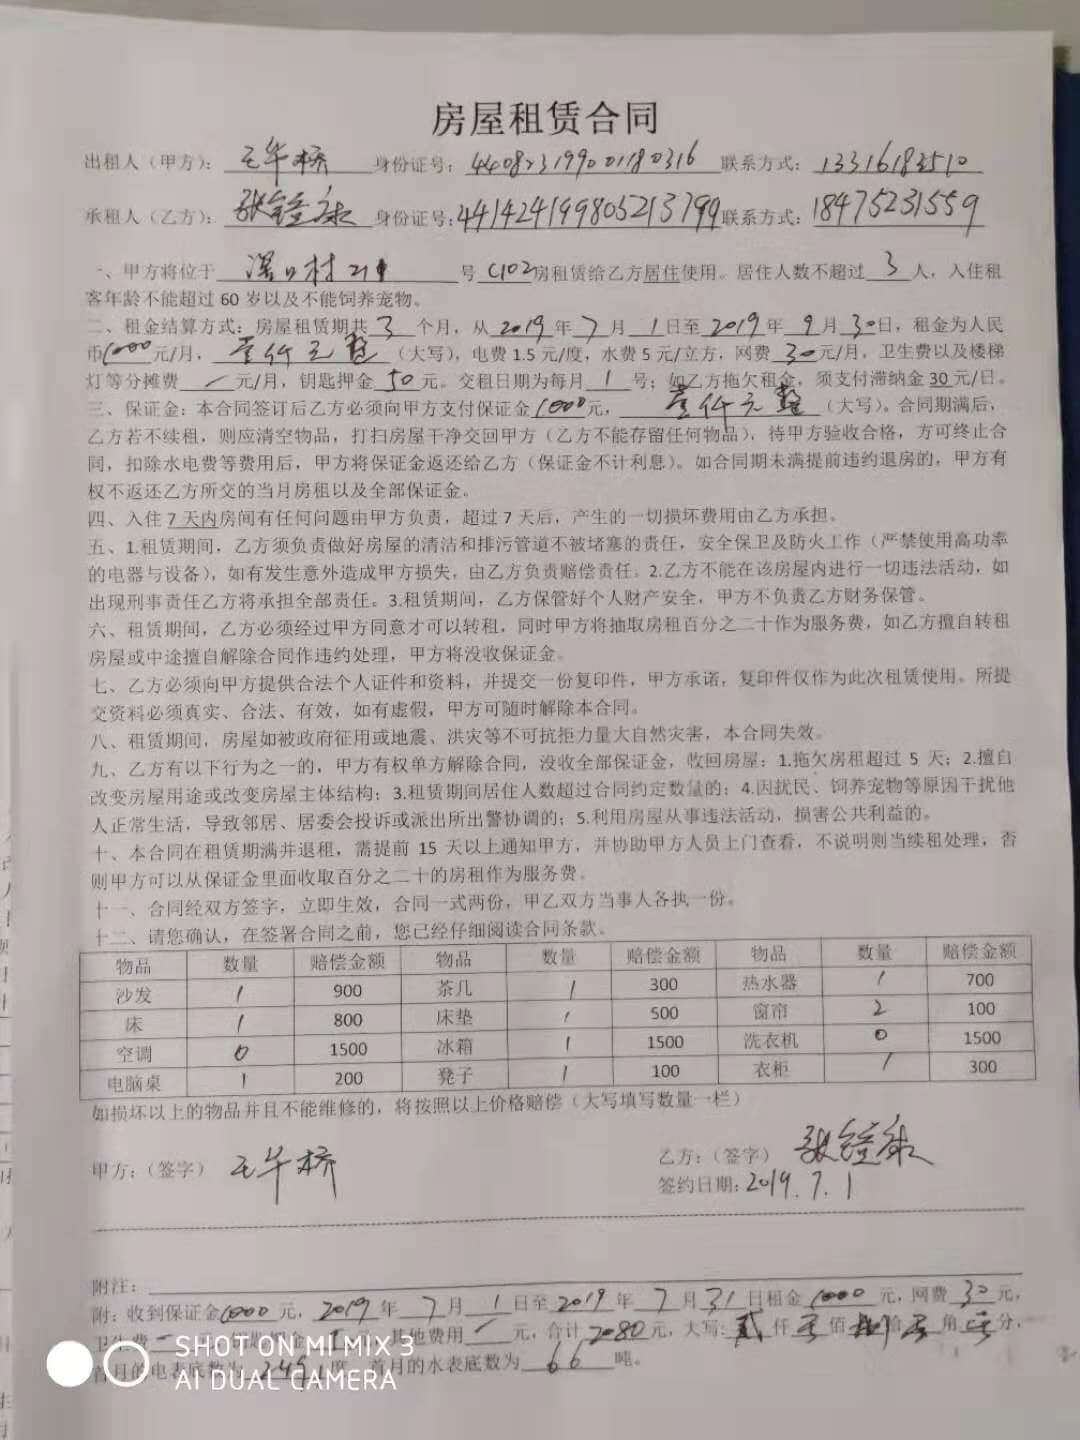 房屋租赁合同
出租人（甲方）： 王华桥 身份证号：440823199001180316 联系方式：13316183510
承租人（乙方）： 张 身份证号：441424199805213799 联系方式：18475231559
一、甲方将位于 村 号 C102 房租赁给乙方居住使用。居住人数不超过 3 人，入住租
客年龄不能超过 60 岁以及不能饲养宠物。
二、租金结算方式：房屋租赁期共 3 个月，从 2019 年 7 月 1 日至 2019 年 9 月 30 日，租金为人民
币 1000 元/月， 壹仟元整 （大写），电费 1.5 元/度，水费 5 元/立方，网费 30 元/月，卫生费以及楼梯
灯等分摊费 一 元/月，钥匙押金 50 元。交租日期为每月 1 号；如乙方拖欠租金，须支付滞纳金 30 元/日。
三、保证金：本合同签订后乙方必须向甲方支付保证金 1000 元， 壹仟元整 （大写）。合同期满后，
乙方若不续租，则应清空物品，打扫房屋干净交回甲方（乙方不能存留任何物品），待甲方验收合格，方可终止合
同，扣除水电费等费用后，甲方将保证金返还给乙方（保证金不计利息）。如合同期未满提前违约退房的，甲方有
权不返还乙方所交的当月房租以及全部保证金。
四、入住 7 天内房间有任何问题由甲方负责，超过 7 天后，产生的一切损坏费用由乙方承担。
五、1.租赁期间，乙方须负责做好房屋的清洁和排污管道不被堵塞的责任，安全保卫及防火工作（严禁使用高功率
的电器与设备），如有发生意外造成甲方损失，由乙方负责赔偿责任。2.乙方不能在该房屋内进行一切违法活动，如
出现刑事责任乙方将承担全部责任。3.租赁期间，乙方保管好个人财产安全，甲方不负责乙方财务保管。
六、租赁期间，乙方必须经过甲方同意才可以转租，同时甲方将抽取房租百分之二十作为服务费，如乙方擅自转租
房屋或中途擅自解除合同作违约处理，甲方将没收保证金。
七、乙方必须向甲方提供合法个人证件和资料，并提交一份复印件，甲方承诺，复印件仅作为此次租赁使用。所提
交资料必须真实、合法、有效，如有虚假，甲方可随时解除本合同。
八、租赁期间，房屋如被政府征用或地震、洪灾等不可抗拒力量大自然灾害，本合同失效。
九、乙方有以下行为之一的，甲方有权单方解除合同，没收全部保证金，收回房屋：1.拖欠房租超过 5 天；2.擅自
改变房屋用途或改变房屋主体结构；3.租赁期间居住人数超过合同约定数量的；4.因扰民、饲养宠物等原因干扰他
人正常生活，导致邻居、居委会投诉或派出所出警协调的；5.利用房屋从事违法活动，损害公共利益的。
十、本合同在租赁期满并退租，需提前 15 天以上通知甲方，并协助甲方人员上门查看，不说明则当续租处理，否
则甲方可以从保证金里面收取百分之二十的房租作为服务费。
十一、合同经双方签字，立即生效，合同一式两份，甲乙双方当事人各执一份。
十二、请您确认，在签署合同之前，您已经仔细阅读合同条款。
物品 数量 赔偿金额 物品 数量 赔偿金额 物品 数量 赔偿金额
沙发 1 900 茶几 1 300 热水器 1 700
床 1 800 床垫 1 500 窗帘 2 100
空调 0 1500 冰箱 1 1500 洗衣机 0 1500
电脑桌 1 200 凳子 1 100 衣柜 1 300
如损坏以上的物品并且不能维修的，将按照以上价格赔偿（大写填写数量一栏）
甲方：（签字） 王华桥 乙方：（签字） 张
签约日期：2019.7.1
附注：
附：收到保证金 1000 元，2019 年 7 月 1 日至 2019 年 7 月 31 日租金 1000 元，网费 30 元，
卫生费 一 他费用 一 元，合计 2080 元，大写：贰 仟 零 佰 拾 零 角 零 分，
首月的电表底数为 度，首月的水表底数为 66 吨。
SHOT ON MI MIX 3
AI DUAL CAMERA